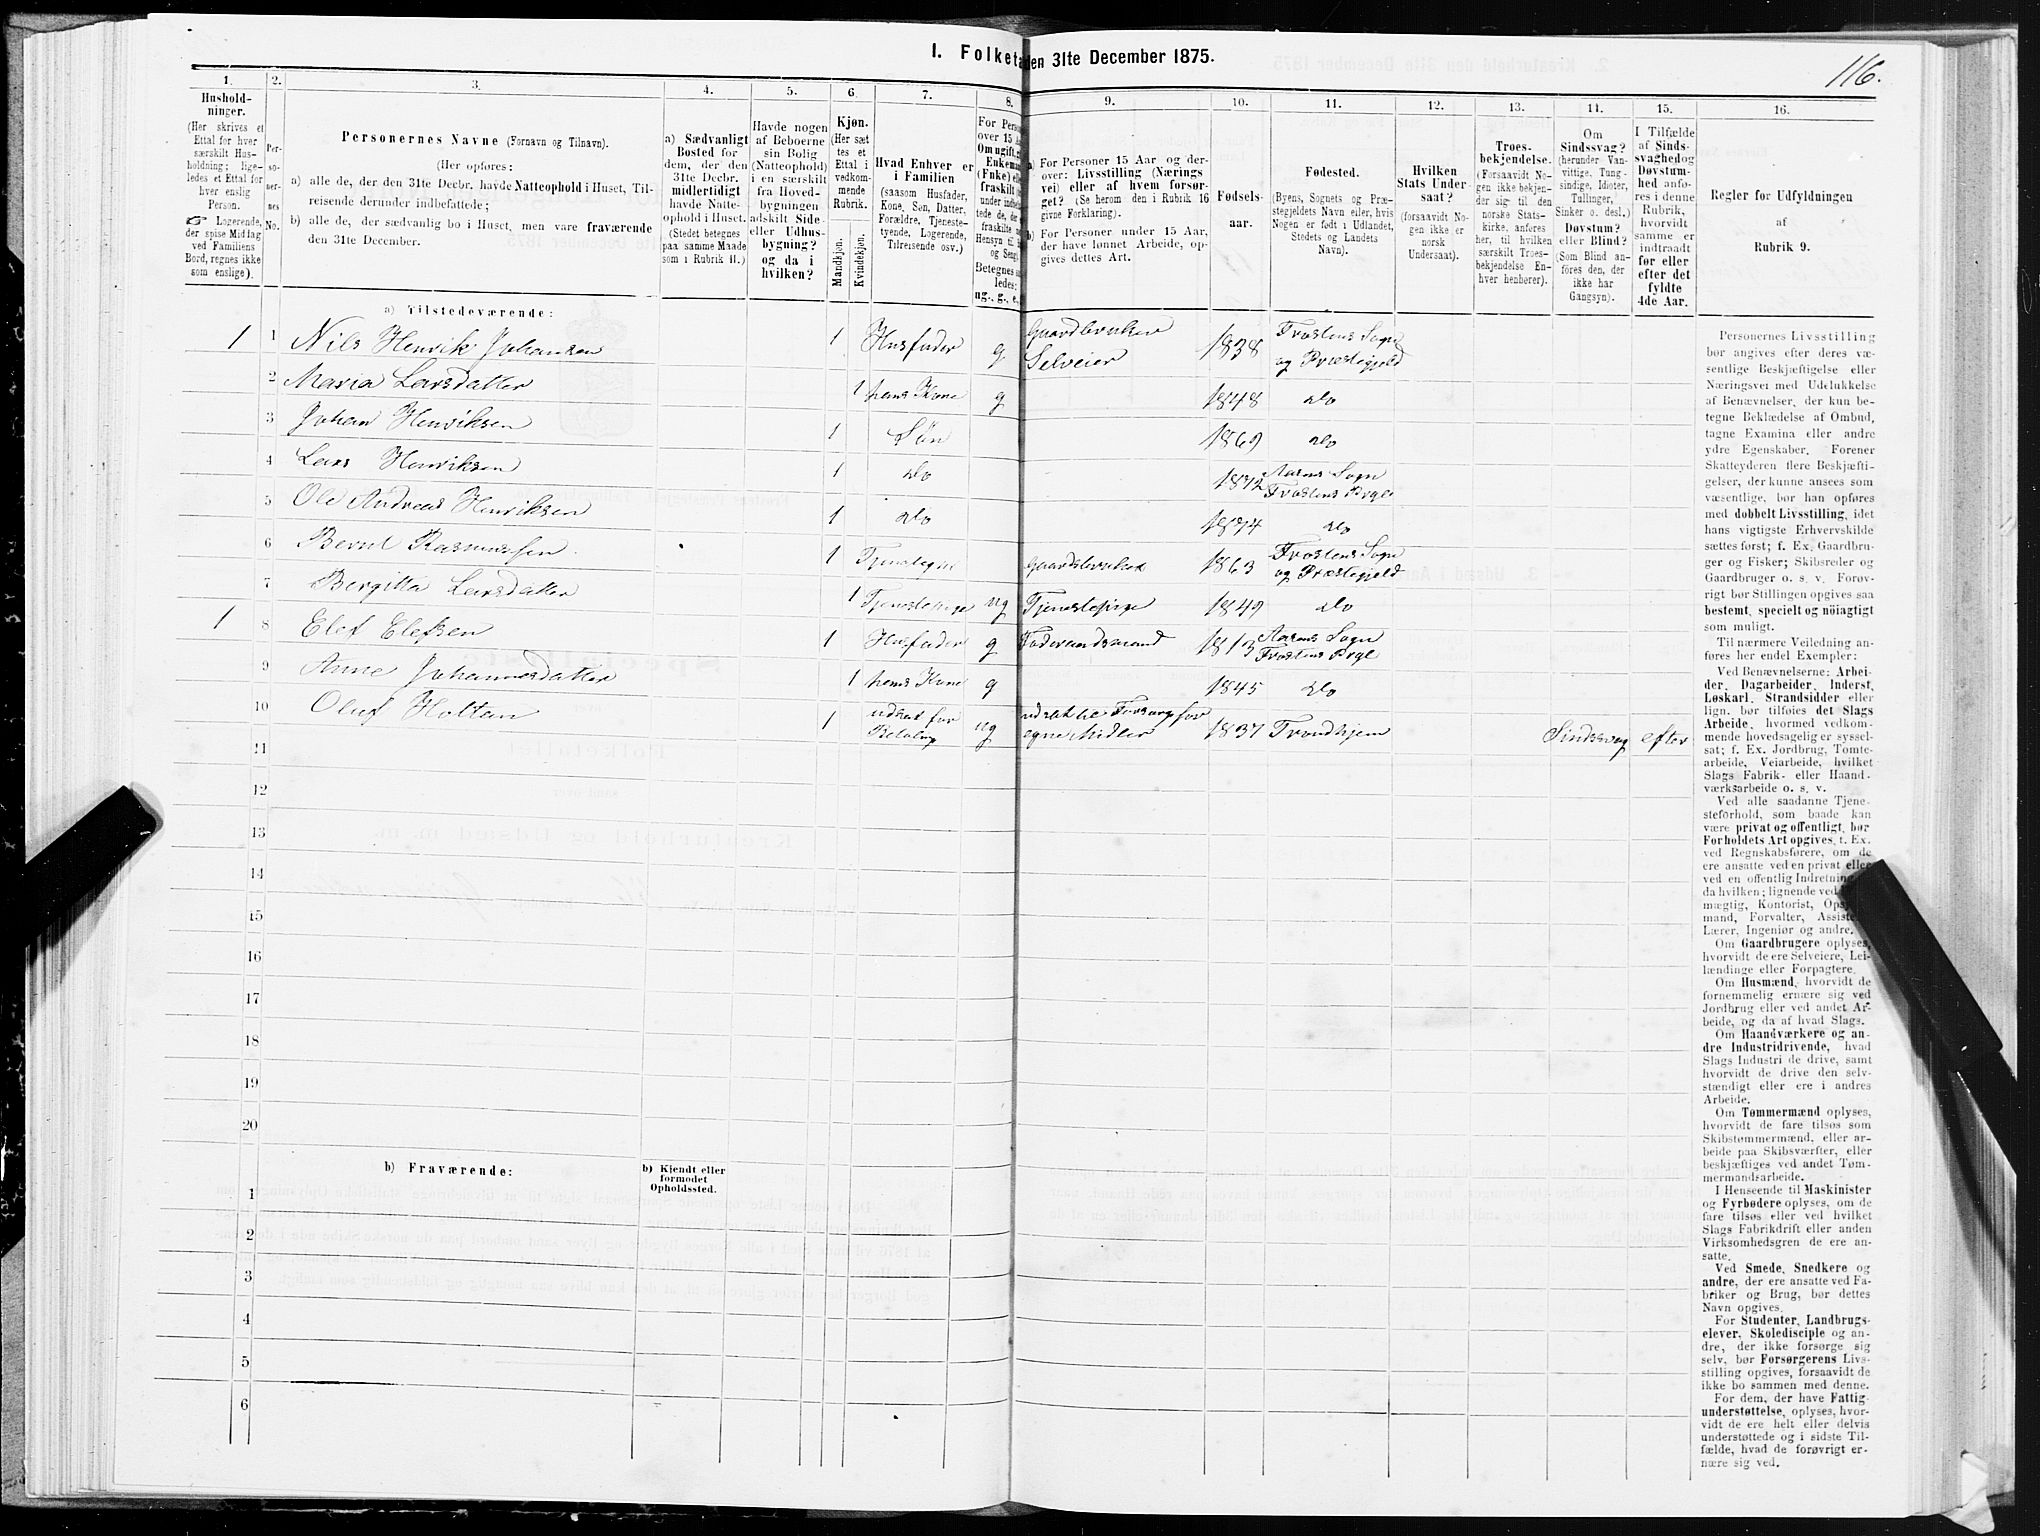 I. Folketa den 31te December 1875.
116.
1.
Hushold-
ninger.
(Her skrives et
Ettal for hver
særskilt Hus-
holdning; lige-
ledes et Ettal for
hver enslig
Person.
Logerende,
der spise Midlag
ved Familiens
Bord, regnes ikke
som enslige).
2.
Per-
so-
ner-
nes
No.
3.
Personernes Navne (Fornavn og Tilnavn).
(Her opføres:
a) alle de, der den 31te Decbr. havde Natteophold i Huset, Til-
reisende derunder indbefattede;
b) alle de, der sædvanlig bo i Huset, men vare fraværende
den 31te December.
4.
a) Sædvanligt
Bosted for
dem, der den
31te Decbr.
midlertidigt
havde Natte-
ophold i Huset.
(Stedet betegnes
paa samme Maade
som i Rubrik 11.)
5.
Havde nogen
af Beboerne
sin Bolig
(Natteophold)
i en særskilt
fra Hoved-
bygningen
adskilt Side-
eller Udhus-
bygning?
og da i
hvilken?
6.
Kjøn.
(Her sæt
tes et
Ettal i
vedkom-
mende
Rubrik.
Mandkjøn.
Kvindekjøn.
7.
Hvad Enhver er
i Familien
(saasom Husfader,
Kone, Søn, Datter,
Forældre, Tjeneste-
tyende, Logerende,
Tilreisende osv.)
8.
For Perso
over 15 Aa
Om ugift, g
Enkeman
(Enke) el
fraskilt
Betegnes
ledes:
ug., g., e.,
9.
a) For Personer 15 Aar og der-
over: Livsstilling (Nærings
vei) eller af hvem forsør-
get? (Se herom den i Rubrik 16
givne Forklaring).
b) For Personer under 15 Aar,
der have lønnet Arbeide, op-
gives dettes Art.
10.
Fødsels-
aar.
11.
Fødested.
(Byens, Sognets og Præ-
stegjeldets Navn eller, hvis
Nogen er født i Udlandet,
Stedets og Landets
Navn).
12.
Hvilken
Stats Under-
saat?
(forsaavidt No-
gen ikke er
norsk
Undersaat).
13.
Troes-
bekjendelse.
(Forsaavidt No-
gen ikke bekjen-
der sig til den
norske Stats-
kirke, anføres
her, til hvilken
særskilt Troes-
bekjendelse En-
hver henhører).
14.
Om
Sindssvag?
(herunder Van-
vittige, Tung-
sindige, Idioter,
Tullinger,
Sinker o. desl.)
Døvstum?
eller Blind?
(Som Blind an-
føres den, der
ikke har
Gangsyn).
15.
I Tilfælde
af Sinds-
svaghed og
Døvstum-
hed anfø-
res i denne
Rubrik,
hvorvidt
samme er
indtraadt
før eller
efter det
fyldte
4de Aar.
16.
Regler for Udfyldningen
af
Rubrik 9.
a) Tilstedeværende:
1 1 Nils Henrik Johansen 1 Husfader g Gaardbruker Selveier 1838 Frostens Sogn og Præstegjeld
2 Maria Larsdatter 1 hans Kone g 1848 do
3 Johan Henriksen 1 Søn 1869 do
4 Lars Henriksen 1 do 1872 Aasens Sogn Frostens Prgl
5 Ole Andreas Henriksen 1 do 1874 do
6 Bernt Rasmussen 1 Tjenestegut Gaardsbruket 1863 Frostens Sogn og Præstegjeld
7 Bergitta Larsdatter 1 Tjenestepige ug Tjenestepige 1849 do
1 8 Elef Elefsen 1 Husfader g Føderaadsmand 1813 Aasens Sogn Frostens Prgl
9 Anne Johannesdatter 1 hans Kone g 1845 do
10 Oluf Holtan 1 udsat for Betaling ug udsat til Forsørg for egne Midler 1837 Trondhjem Sindssvag efter
11
12
13
14
15
16
17
18
19
20
b) Fraværende:
b) Kjendt eller
formodet
Opholdssted.
1
2
3
4
5
6
Personernes Livsstilling
bør angives efter deres væ-
sentlige Beskjæftigelse eller
Næringsvei med Udelukkelse
af Benævnelser, der kun be-
tegne Beklædelse af Ombud,
tagne Examina eller andre
ydre Egenskaber. Forener
Skatteyderen flere Beskjæfti-
gelser, der kunne ansees som
væsentlige, bør han opføres
med dobbelt Livsstilling, idet
hans vigtigste Erhvervskilde
sættes først; f. Ex. Gaardbru-
ger og Fisker; Skibsreder og
Gaardbruger o. s. v. Forøv-
rigt bør Stillingen opgives saa
bestemt, specielt og nöiagtigt
som muligt.
Til nærmere Veiledning an-
føres her endel Exempler:
Ved Benævnelserne: Arbei-
der, Dagarbeider, Inderst,
Løskarl, Strandsidder eller
lign. bør tilføies det Slags
Arbeide, hvormed vedkom-
mende hovedsagelig er syssel-
sat; f. Ex. Jordbrug, Tomte-
arbeide, Veiarbeide, hvilket
Slags Fabrik- eller Haand-
værksarbeide o. s. v.
Ved alle saadanne Tjene-
steforhold, som baade kan
være privat og offentligt, bør
Forholdets Art opgives, t. Ex.
ved Regnskabsførere, om de
ere ansatte ved en privat eller
ved en offentlig Indretning
da hvilken; lignende ved
mægtig, Kontorist, Ops
mand, Forvalter, Assiste
Lærer, Ingeniør og andre.
Om Gaardbrugere oplyses,
hvorvidt de ere Selveiere, Lei-
lændinge eller Forpagtere.
Om Husmænd, hvorvidt de
fornemmelig ernære sig ved
Jordbrug eller ved andet Ar-
beide, og da af hvad Slags.
Om Haandværkere og an-
dre Industridrivende, hvad
Slags Industri de drive, samt
hvorvidt de drive den selv-
stændigt eller ere i andres
Arbeide.
Om Tømmermænd oplyses,
hvorvidt de fare tilsøs som
Skibstømmermænd, eller ar-
beide paa Skibsværfter, eller
beskjæftiges ved andet Tøm-
mermandsarbeide.
I Henseende til Maskinister
og Fyrbødere oplyses, om de
fare tilsøs eller ved hvilket
Slags Fabrikdrift eller anden
Virksomhedsgren de ere an-
satte.
Ved Smede, Snedkere og
andre, der ere ansatte ved Fa-
briker og Brug, bør dettes
Navn opgives.
For Studenter, Landbrugs-
elever, Skoledisciple og an-
dre, der ikke forsørge sig
selv, bør Forsørgerens Livs-
stilling opgives, forsaavidt de
ikke bo sammen med denne.
For dem, der have Fattig-
understøttelse, oplyses, hvor-
vidt de ere helt eller delvis
understøttede og i sidste Til-
fælde, hvad de forøvrigt er-
nære sig ved.